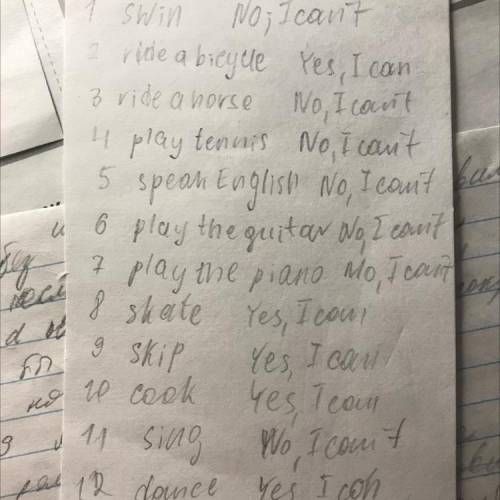 1 swin No, I can't
2 ride a bicycle Yes, I can
3 ride a horse No, I can't
4 play tennis No, I can't
5 speak English No, I can't
6 play the guitar No, I can't
7 play the piano No, I can't
8 skate Yes, I can
9 skip Yes, I can
10 cook Yes, I can
11 sing No, I can't
12 dance Yes I can